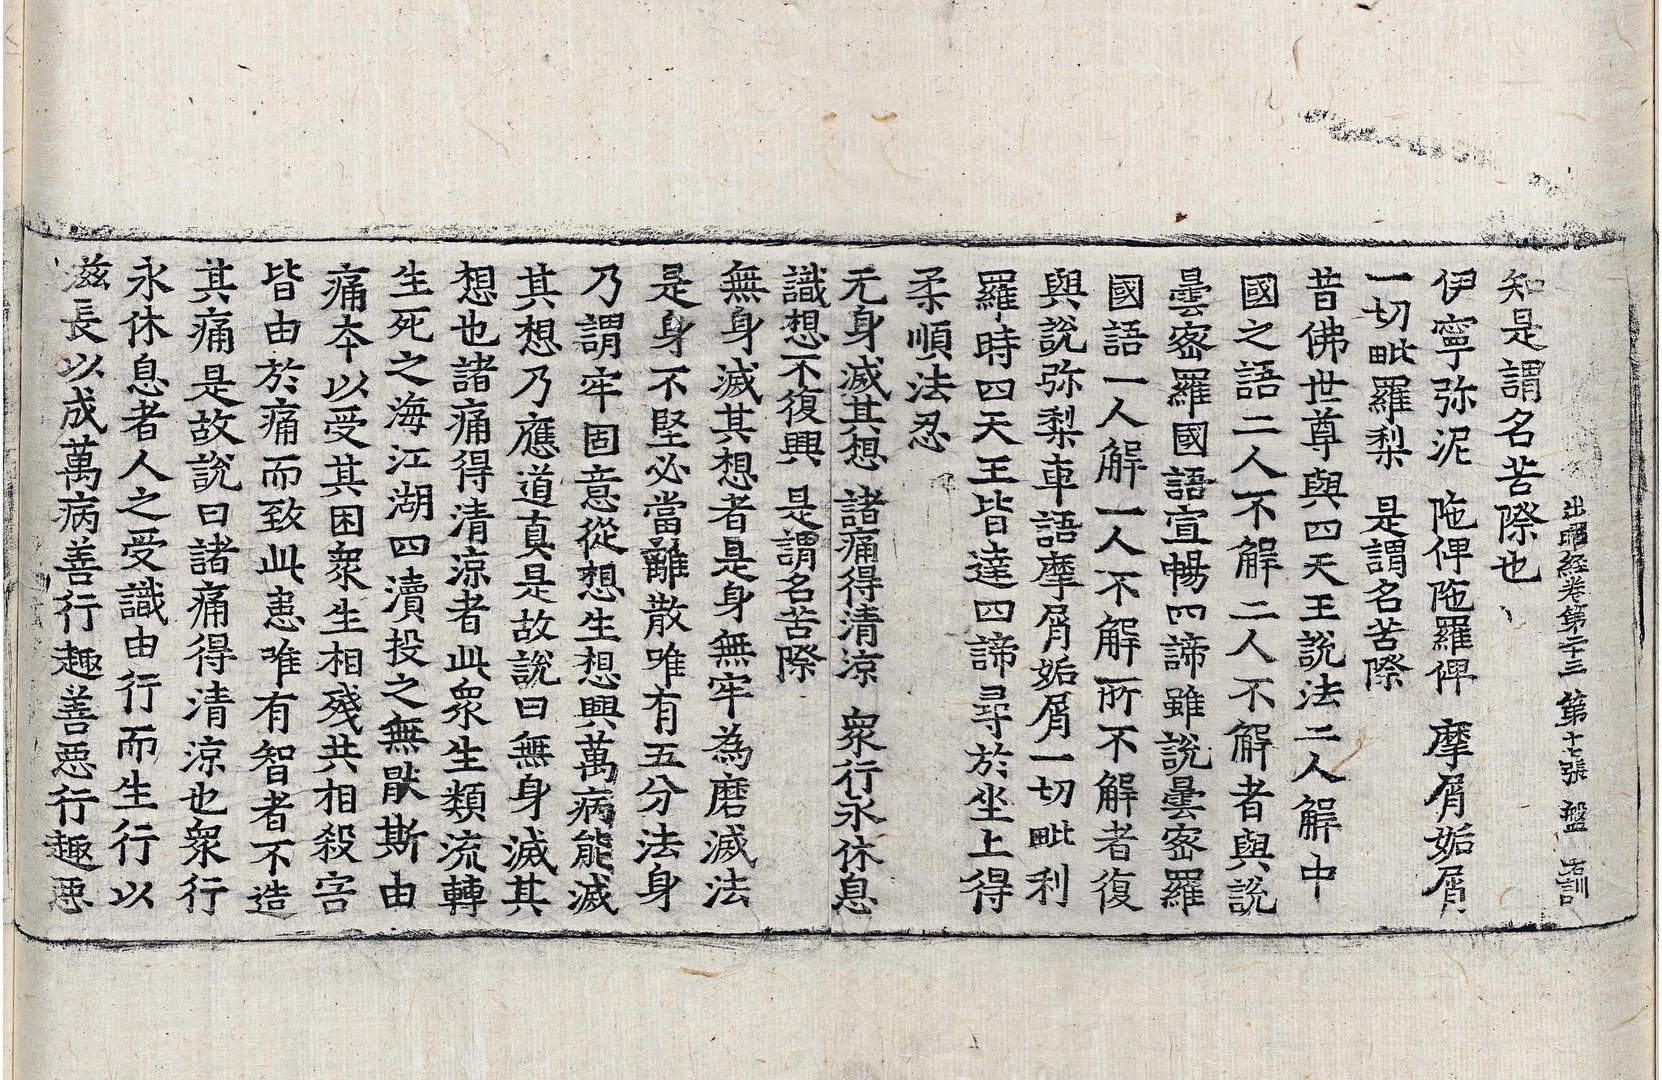 出曜經卷第二十三　第十七張　盤　石訓
知是謂名苦際也
伊寧弥泥　陁俾陁羅俾　摩屑姤屑
一切毗羅梨　是謂名苦際
昔佛世尊與四天王說法二人解中
國之語二人不解二人不解者與說
曇密羅國語宣暢四諦雖說曇密羅
國語一人解一人不解所不解者復
與說弥梨車語摩屑姤屑一切毗利
羅時四天王皆達四諦尋於坐上得
柔順法忍
无身滅其想　諸痛得清涼　衆行永休息
識想不復興　是謂名苦際
無身滅其想者是身無牢為磨滅法
是身不堅必當離散唯有五分法身
乃謂牢固意從想生想興萬病能滅
其想乃應道真是故說曰無身滅其
想也諸痛得清涼者此衆生類流轉
生死之海江湖四瀆投之無猒斯由
痛夲以受其困衆生相殘共相殺害
皆由於痛而致此患唯有智者不造
其痛是故說曰諸痛得清涼也衆行
永休息者人之受識由行而生行以
滋長以成萬病善行趣善惡行趣惡